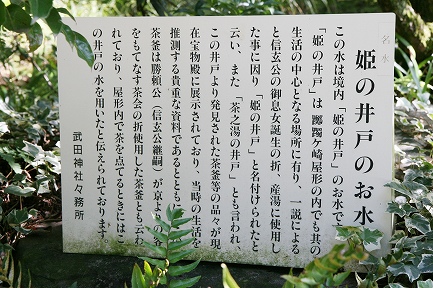 名水
姫の井戸のお水
この水は境内「姫の井戸」のお水で
「姫の井戸」は躑躅ケ崎屋形の内でも其の
生活の中心となる場所に有り、一説による
と信玄公の御息女誕生の折、産湯に使用し
た事に因り、「姫の井戸」と名付けられたと
云い、また「茶之湯の井戸」とも言われ
この井戸より発見された茶釜等の品々が現
在宝物殿に展示されており、当時の生活を
推測する貴重な資料であるとともに
茶釜は勝頼公（信玄公継嗣）が京よりの客
をもてなす茶会の折使用した茶釜とも云わ
れており、屋形内で茶を点てるときにはこ
の井戸の水を用いたと伝えられております。
武田神社々務所